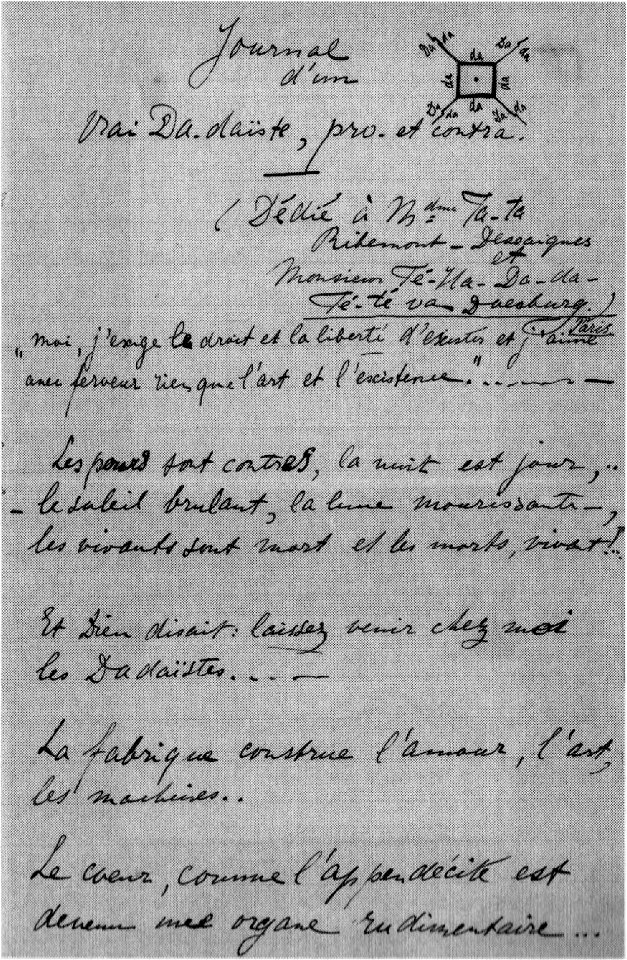 Journal
d'un
Da da
da
Da da
da
da
Da da
da
Da da
Vrai Da-daïste, pro- et contra.
( Dédié à Mdme Ta-ta
Ribemont - Dessaignes
et
Monsieur Té-Ha-Da-da-
Té-té van Doesburg.)
Paris
„moi, j'exige le droit et la liberté d'exister et j'aime
avec ferveur rien que l'art et l'existence."
Les pours sont contres, la nuit est jour,..
- le soleil brulant, la lune mourissante -,
les vivants sont mort et les morts, vivat!..
Et Dieu disait: laissez venir chez moi
les Dadaïstes....
La fabrique construe l'amour, l'art,
les machines..
Le coeur, comme l'appendécite est
devenu une organe rudimentaire...